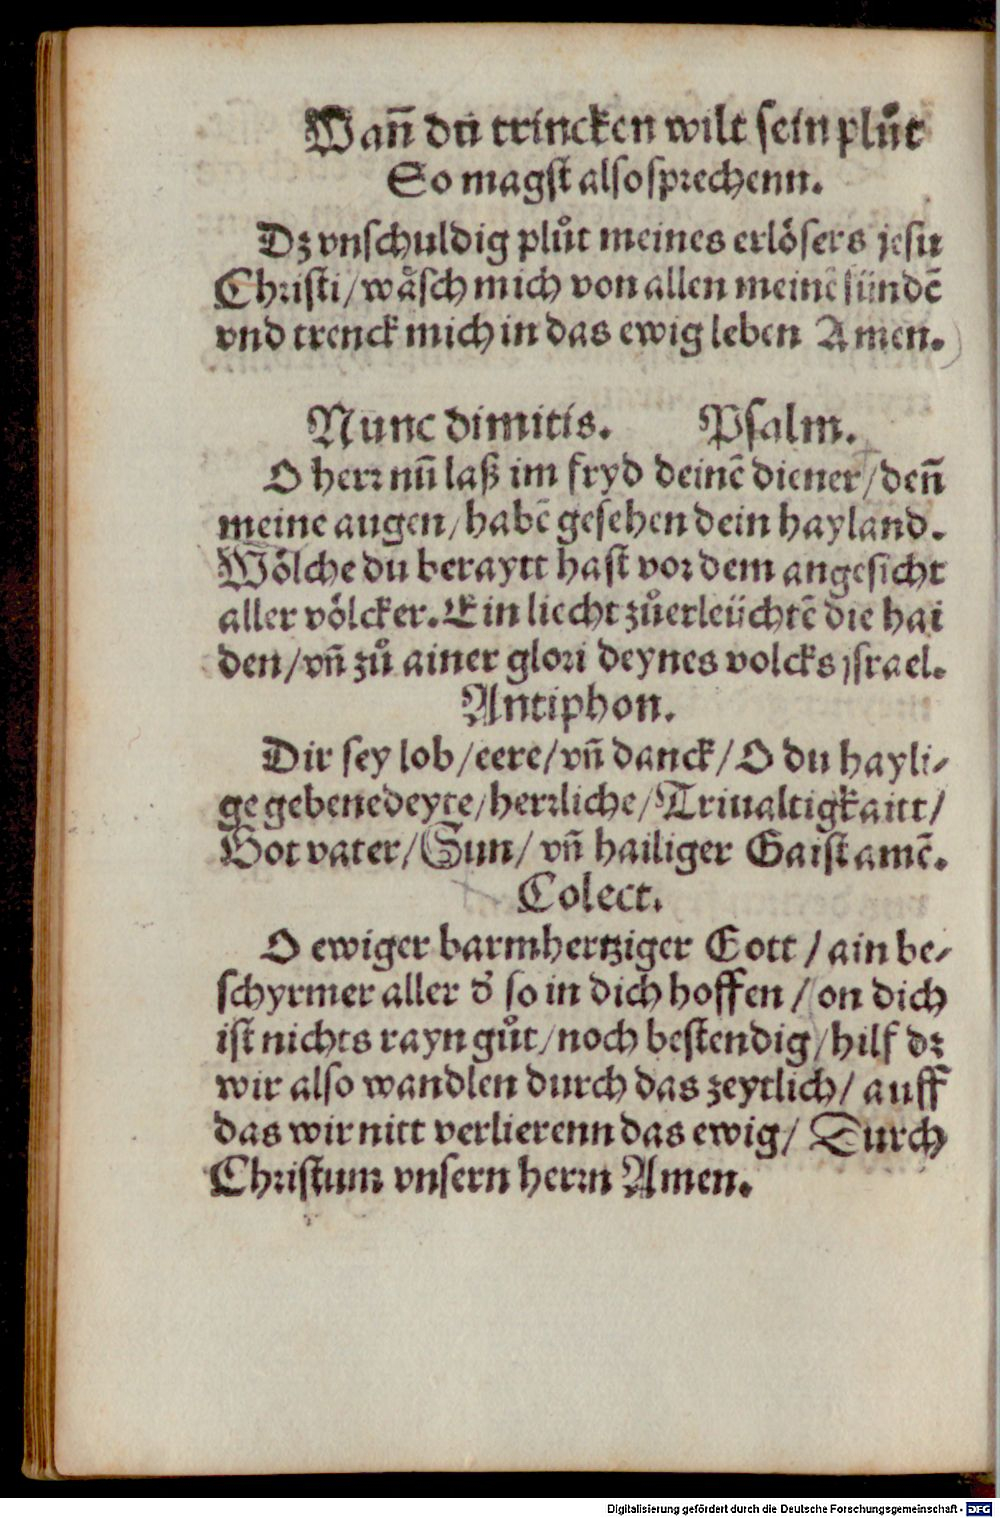 Wañ du trincken wilt sein plůt
So magst also sprechenn.
Dz vnschuldig plůt meines erlösers jesu
Christi / wäsch mich von allen meinē sündē
vnd trenck mich in das ewig leben Amen.
Nunc dimitis. Psalm.
O herr nuñ laß im fryd deinē diener / deñ
meine augen / habē gesehen dein hayland.
Wölche du beraytt hast vor dem angesicht
aller völcker. Ein liecht zůerleüchtē die hai
den / vñ zů ainer glori deynes volcks jsrael.
Antiphon.
Dir sey lob / eere / vñ danck / O du hayli-
ge gebenedeyte / herrliche / Triualtigkaitt /
Got vater / Sun / vñ hailiger Gaist amē.
Colect.
O ewiger barmhertziger Gott / ain be-
schyrmer aller d' so in dich hoffen / on dich
ist nichts rayn gůt / noch bestendig / hilf dz
wir also wandlen durch das zeytlich / auff
das wir nitt verlierenn das ewig / Durch
Christum vnsern herrn Amen.
Digitalisierung gefördert durch die Deutsche Forschungsgemeinschaft - DFG